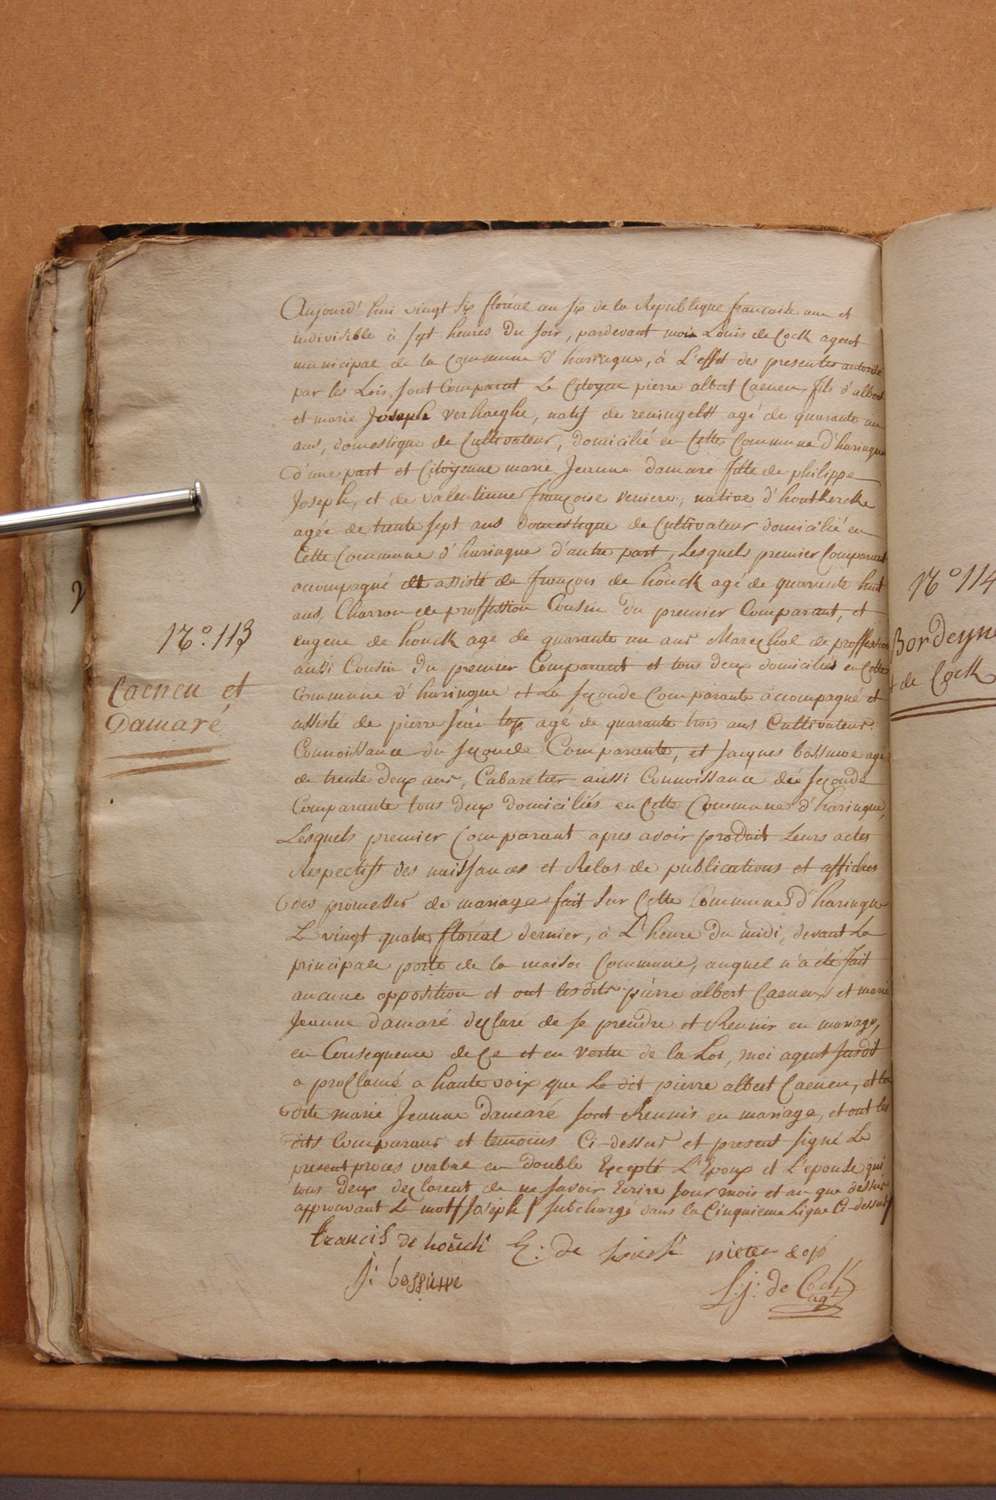 N.o 113
Caeneu et
Damaré
Aujourd'huis vingt six floréal an six de la République francoise une et
indivisible à sept heures du soir, pardevant moi Louis de Cock agent
municipal de la Commune d'haringue, à L'effet des presentes autorisé
par les Lois, sont Comparut Le Citoyen pierre albert Caeneu fils d'albert
et marie Joseph verhaeghe, natif de reningelst agé de quarante un
ans, domestique de Cultivateur, domicilié en Cette Commune d'haringue
d'une part et Citoyenne marie Jeanne damaré fille de philippe
Joseph, et de valentienne françoise veniere, native d'houtkercke
agée de trente sept ans domestique de Cultivateur domicilié en
Cette Commune d'haringue d'autre part, Lesquels premier Comparant
accompagné et assisté de françois de houck agé de quarante huit
ans, Charron de proffession Cousin du premier Comparant, et
Eugene de houck agé de quarante un ans Marechal de proffession
aussi Cousin du premier Comparant et tous deux domiciliés en Cette
Commune d'haringue et La seconde Comparante accompagné et
assisté de pierre agé de quarante trois ans Cultivateur
Connoissance du seconde Comparante, et Jacques bossuwe agé
de trente deux ans, Cabaretier aussi Connoissance de seconde
Comparante tous deux domiciliés en Cette Commune d'haringue,
Lesquels premier Comparant apres avoir produit Leurs actes
Respectifs des naissances et Relas de publications et affiches
des promesses de mariage fait sur Cette Commune d'haringue
Le vingt quatre floréal dernier, à L'heure du midi, devant La
principale porte de la maison Commune, auquel n'a été fait
aucune opposition et ont lesdits pierre albert Caeneu et marie
Jeanne damaré declaré de se prendre et Reunir en mariage,
en Consequence de Ce et en vertu de la Loi, moi agent susdit
a proclamé a haute voix que Le dit pierre albert Caeneu, et la
dite marie Jeanne damaré sont Reunis en mariage, et ont les
dits Comparans et temoins Ci-dessus et present signé Le
present proces verbal en double Excepté L'Epoux et L'epouse qui
tous deux declarent de ne savoir Ecrire Jour mois et an que dessus
approuvant Le mot / Joseph / subcharge dans la Cinquieme Ligne Ci-dessus /
francis de houck E: de houck pieter
J: bossuwe
L: j: de Cock
agt
N.o 114
Bordeyne
et de Cock